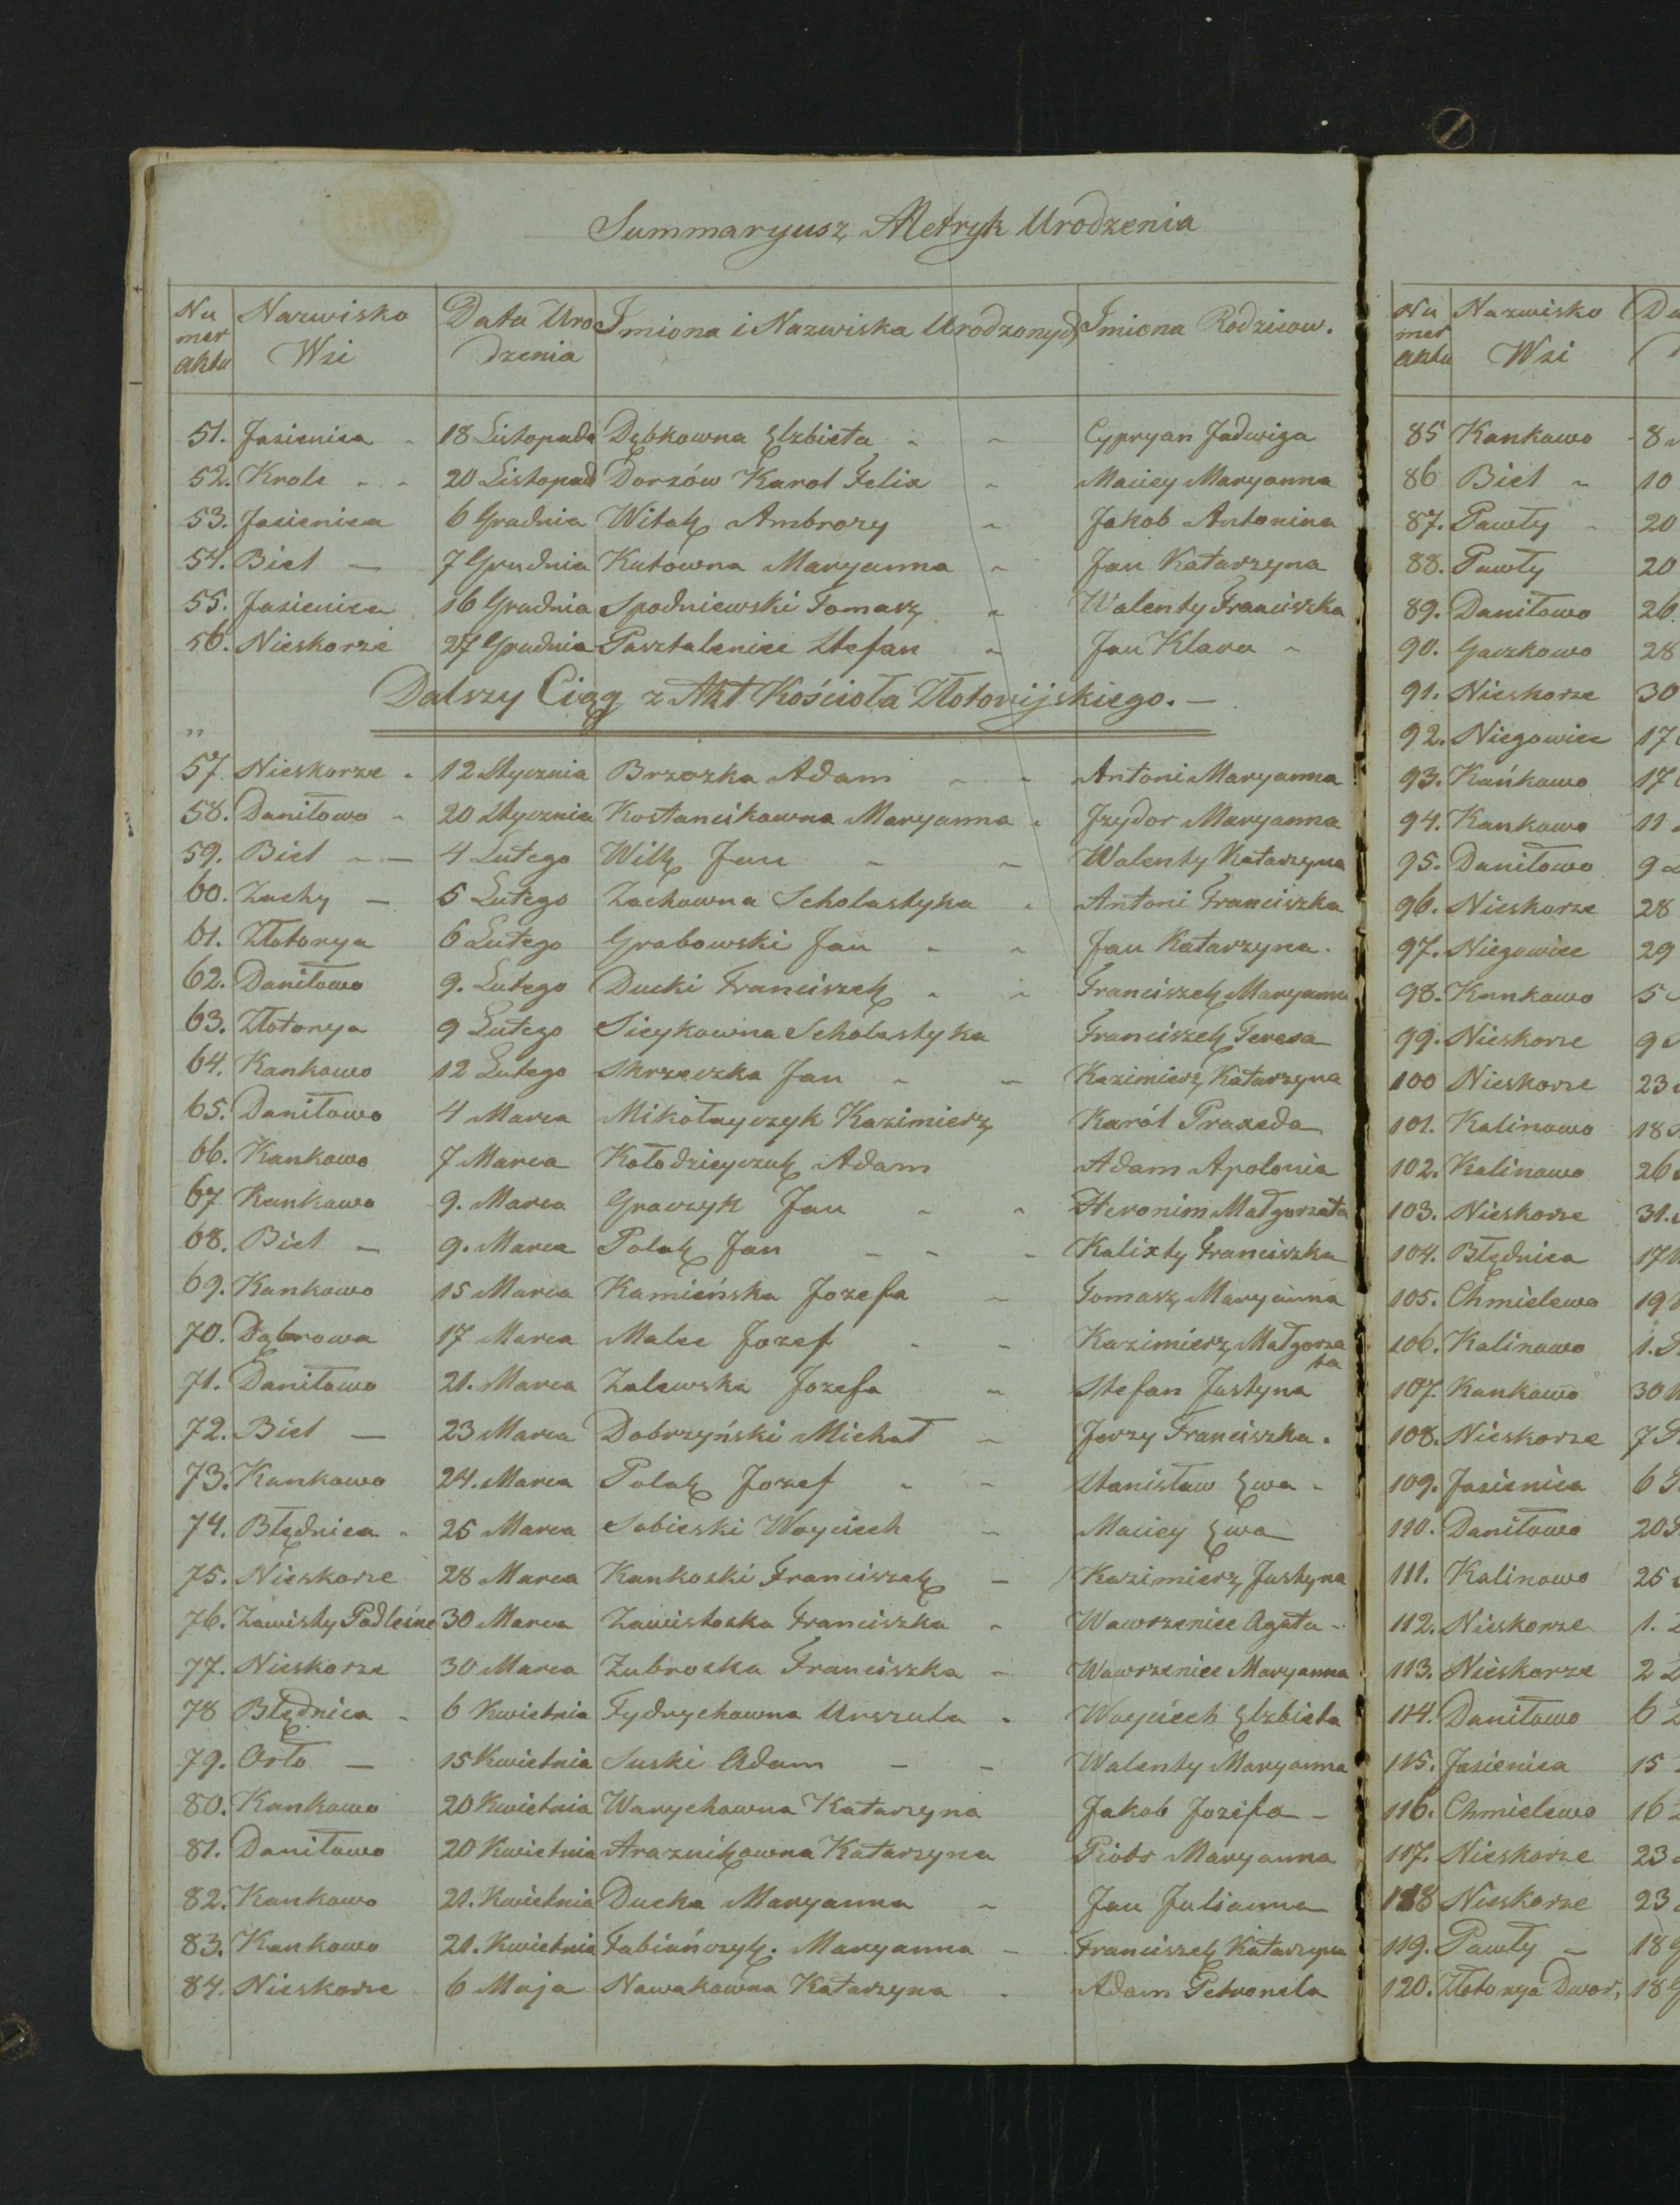 Summaryusz Metryk Urodzenia
Nu mer aktu Nazwisko Wsi Data Uro dzenia Imiona i Nazwiska Urodzonych Imiona Rodzicow.
51. Jasienica 18 Listopada Dębkowna Elzbieta Cypryan Jadwiga
52. Krole 20 Listopad Dorzów Karol Felix Maciey Maryanna
53. Jasienica 6 Grudnia Witak Ambrozy Jakob Antonina
54. Biel 7 Grudnia Kutowna Maryanna Jan Katarzyna
55. Jasienica 16 Grudnia Spodniewski Tomasz Walenty Franciszka
56. Nieskorze 27 Grudnia Pasztaleniec Stefan Jan Klara
Dalszy Ciąg z Akt Kościoła Złotoryjskiego.
57. Nieskorze 12 Stycznia Brzozka Adam Antoni Maryanna
58. Daniłowo 20 Stycznia Kostancikowna Maryanna Jzydor Maryanna
59. Biel 4 Lutego Wilk Jan Walenty Katarzyna
60. Zachy 5 Lutego Zachowna Scholastyka Antoni Franciszka
61. Złotorya 6 Lutego Grabowski Jan Jan Katarzyna.
62. Daniłowo 9. Lutego Ducki Franciszek Franciszek Maryanna
63. Złotorya 9 Lutego Sieykowna Scholastyka Franciszek Teresa
64. Kankowo 12 Lutego Skrzeczka Jan Kazimierz Katarzyna
65. Daniłowo 4 Marca Mikołayczyk Kazimierz Karól Praxeda
66. Kankowo 7 Marca Kołodzieyczuk Adam Adam Apolonia
67 Kankowo 9. Marca Graczyk Jan Heronim Małgorzata
68. Biel 9. Marca Polak Jan Kalixty Franciszka
69. Kankowo 15 Marca Kamieńska Jozefa Tomasz Maryanna
70. Dąbrowa 17 Marca Malec Jozef Kazimierz Małgorza ta
71. Daniłowo 21. Marca Zalewska Jozefa Stefan Justyna
72. Biel 23 Marca Dobrzyński Michał Jerzy Franciszka.
73. Kankowo 24. Marca Polak Jozef Stanisław Ewa
74. Błędnica 25 Marca Sobieski Woyciech Maciey Ewa
75. Nieskorze 28 Marca Kankoski Franciszek Kazimierz Justyna
76. Zawisty Podleśne 30 Marca Zawistoska Franciszka Wawrzeniec Agata
77. Nieskorze 30 Marca Zubroska Franciszka Wawrzeniec Maryanna
78 Błędnica 6 Kwietnia Fydrychowna Urszula Woyciech Elzbieta
79. Orło 15 Kwietnia Suski Adam Walenty Maryanna
80. Kankowo 20 Kwietnia Warychowna Katarzyna Jakob Jozefa
81. Daniłowo 20 Kwietnia Araznikowna Katarzyna Piotr Maryanna
82. Kankowo 21. Kwietnia Ducka Maryanna Jan Julianna
83. Kankowo 21. Kwietnia Fabiańczyk. Maryanna Franciszek Katarzyna
84. Nieskorze 6 Maja Nowakowna Katarzyna Adam Petronela
Nu mer aktu Nazwisko Wsi Da
85 Kankowo 8
86 Biel 10
87. Pawły 20
88. Pawły 20
89. Daniłowo 26.
90. Gaczkowo 28
91. Nieskorze 30
92. Niegowiec 17
93. Kańkowo 17
94. Kankowo 11
95. Daniłowo 9
96. Nieskorze 28
97. Niegowiec 29
98. Kankowo 5
99. Nieskorze 9
100 Nieskorze 23
101. Kalinowo 18
102. Kalinowo 26
103. Nieskorze 31.
104. Błędnica 17
105. Chmielewo 19
106. Kalinowo 1.
107. Kankowo 30
108. Nieskorze 7
109. Jasienica 6
110. Daniłowo 20
111. Kalinowo 25
112. Nieskorze 1.
113. Nieskorze 2
114. Daniłowo 6
115. Jasienica 15
116. Chmielewo 16
117. Nieskorze 23
118 Nieskorze 23
119. Pawły 18
120. Złotorya Dwor, 18